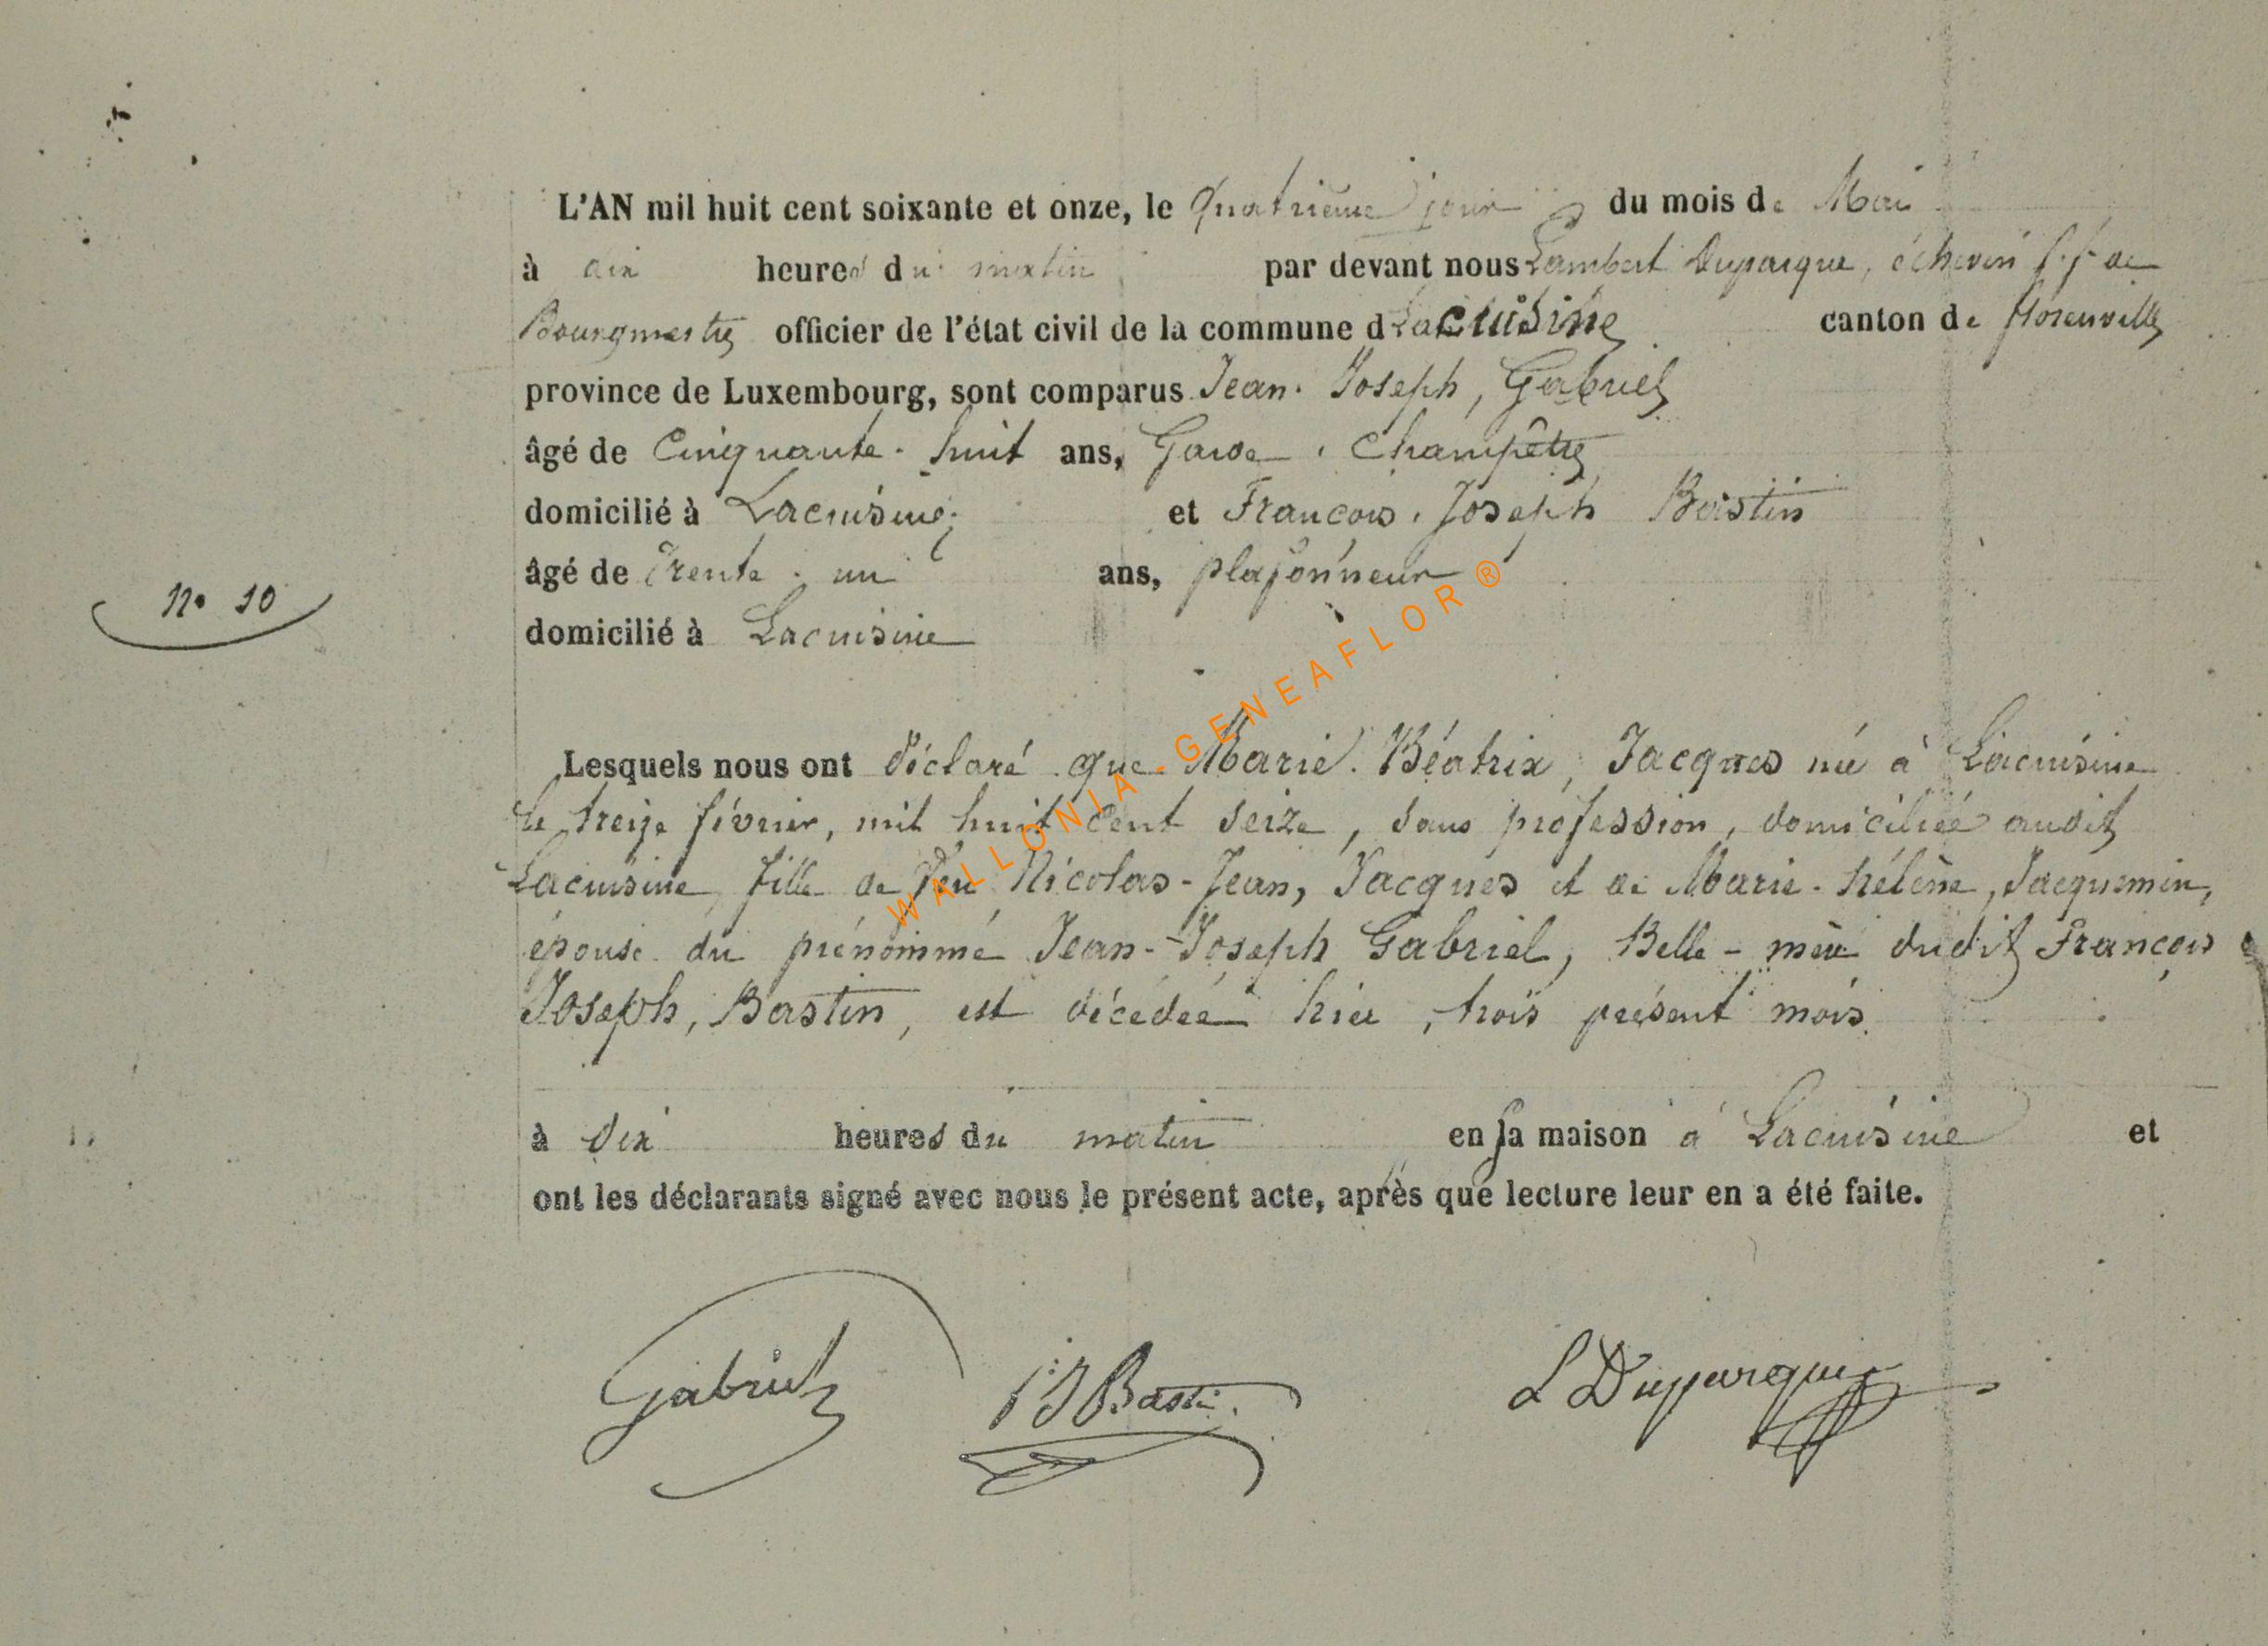 L'AN mil huit cent soixante et onze, le Quatrième jour du mois de Mai
à dix heures du matin par devant nous Lambert Duparque, échevin f.f. de
Bourgmestre officier de l'état civil de la commune d Lacuisine canton de Florenville
province de Luxembourg, sont comparus Jean-Joseph, Gabriel
âgé de Cinquante-huit ans, Garde-Champêtre
domicilié à Lacuisine; et François-Joseph Bastin
âgé de Trente-un ans, plafonneur
N° 10
domicilié à Lacuisine
Lesquels nous ont déclaré que Marie-Béatrix, Jacques née à Lacuisine
le treize février, mil huit cent seize, sans profession, domiciliée audit
Lacuisine, fille de feu Nicolas-Jean, Jacques et de Marie-hélène, Jacquemin,
épouse du prénommé Jean-Joseph Gabriel, Belle-mère dudit François
Joseph, Bastin, est décédée hier, trois présent mois
à dix heures du matin en sa maison à Lacuisine et
ont les déclarants signé avec nous le présent acte, après que lecture leur en a été faite.
Gabriel FJ Bastin L Duparque
WALLONIA-GENEAFLOR®